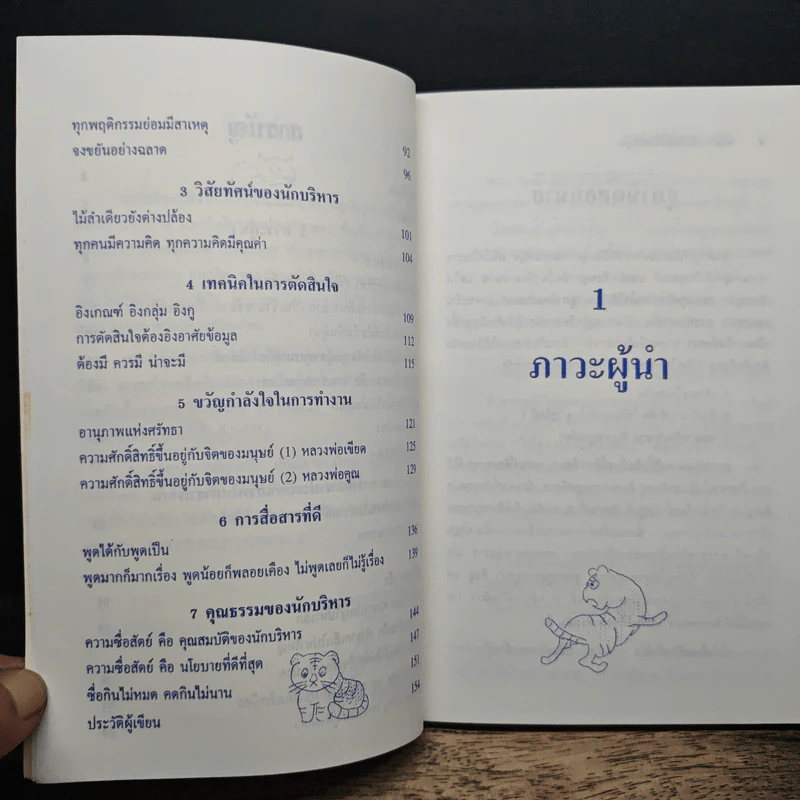 ทุกพฤติกรรมย่อมมีสาเหตุ 92
จงขยันอย่างฉลาด 96
3 วิสัยทัศน์ของนักบริหาร
ไม้ลำเดียวยังต่างปล้อง 101
ทุกคนมีความคิด ทุกความคิดมีคุณค่า 104
4 เทคนิคในการตัดสินใจ
อิงเกณฑ์ อิงกลุ่ม อิงกู 109
การตัดสินใจต้องอิงอาศัยข้อมูล 112
ต้องมี ควรมี น่าจะมี 115
5 ขวัญกำลังใจในการทำงาน
อานุภาพแห่งศรัทธา 121
ความศักดิ์สิทธิ์ขึ้นอยู่กับจิตของมนุษย์ (1) หลวงพ่อเขียด 125
ความศักดิ์สิทธิ์ขึ้นอยู่กับจิตของมนุษย์ (2) หลวงพ่อคูณ 129
6 การสื่อสารที่ดี
พูดได้กับพูดเป็น 136
พูดมากก็มากเรื่อง พูดน้อยก็พลอยเคือง ไม่พูดเลยก็ไม่รู้เรื่อง 139
7 คุณธรรมของนักบริหาร
ความซื่อสัตย์ คือ คุณสมบัติของนักบริหาร 144
ความซื่อสัตย์ คือ นโยบายที่ดีที่สุด 147
ซื่อกินไม่หมด คดกินไม่นาน 151
ประวัติผู้เขียน 154
1
ภาวะผู้นำ